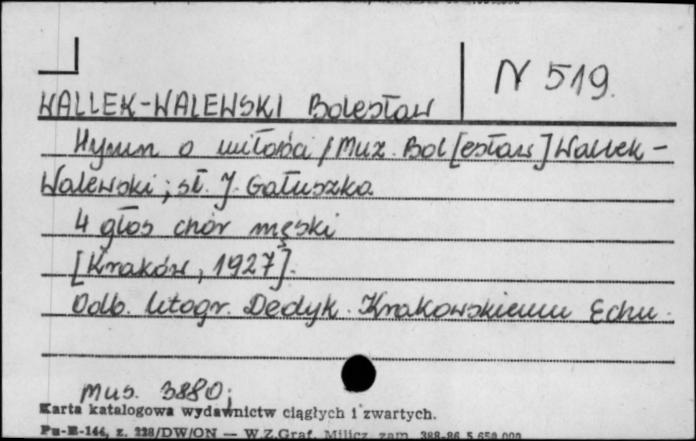 N 519.
WALLEK-WALEWSKI Bolesław
Hymn o miłości / Muz. Bol[esław] Wallek-
Walewski ; sł. J. Gałuszka
4 głos chór męski
[Kraków, 1927].
Odb. litogr. Dedyk. Krakowskiemu Echu.
Mus. 3880;
Karta katalogowa wydawnictw ciągłych i zwartych.
Pu-K-144, z. 228/DW/ON — W.Z.Graf. Milicz zam. 388-86 5.650.000